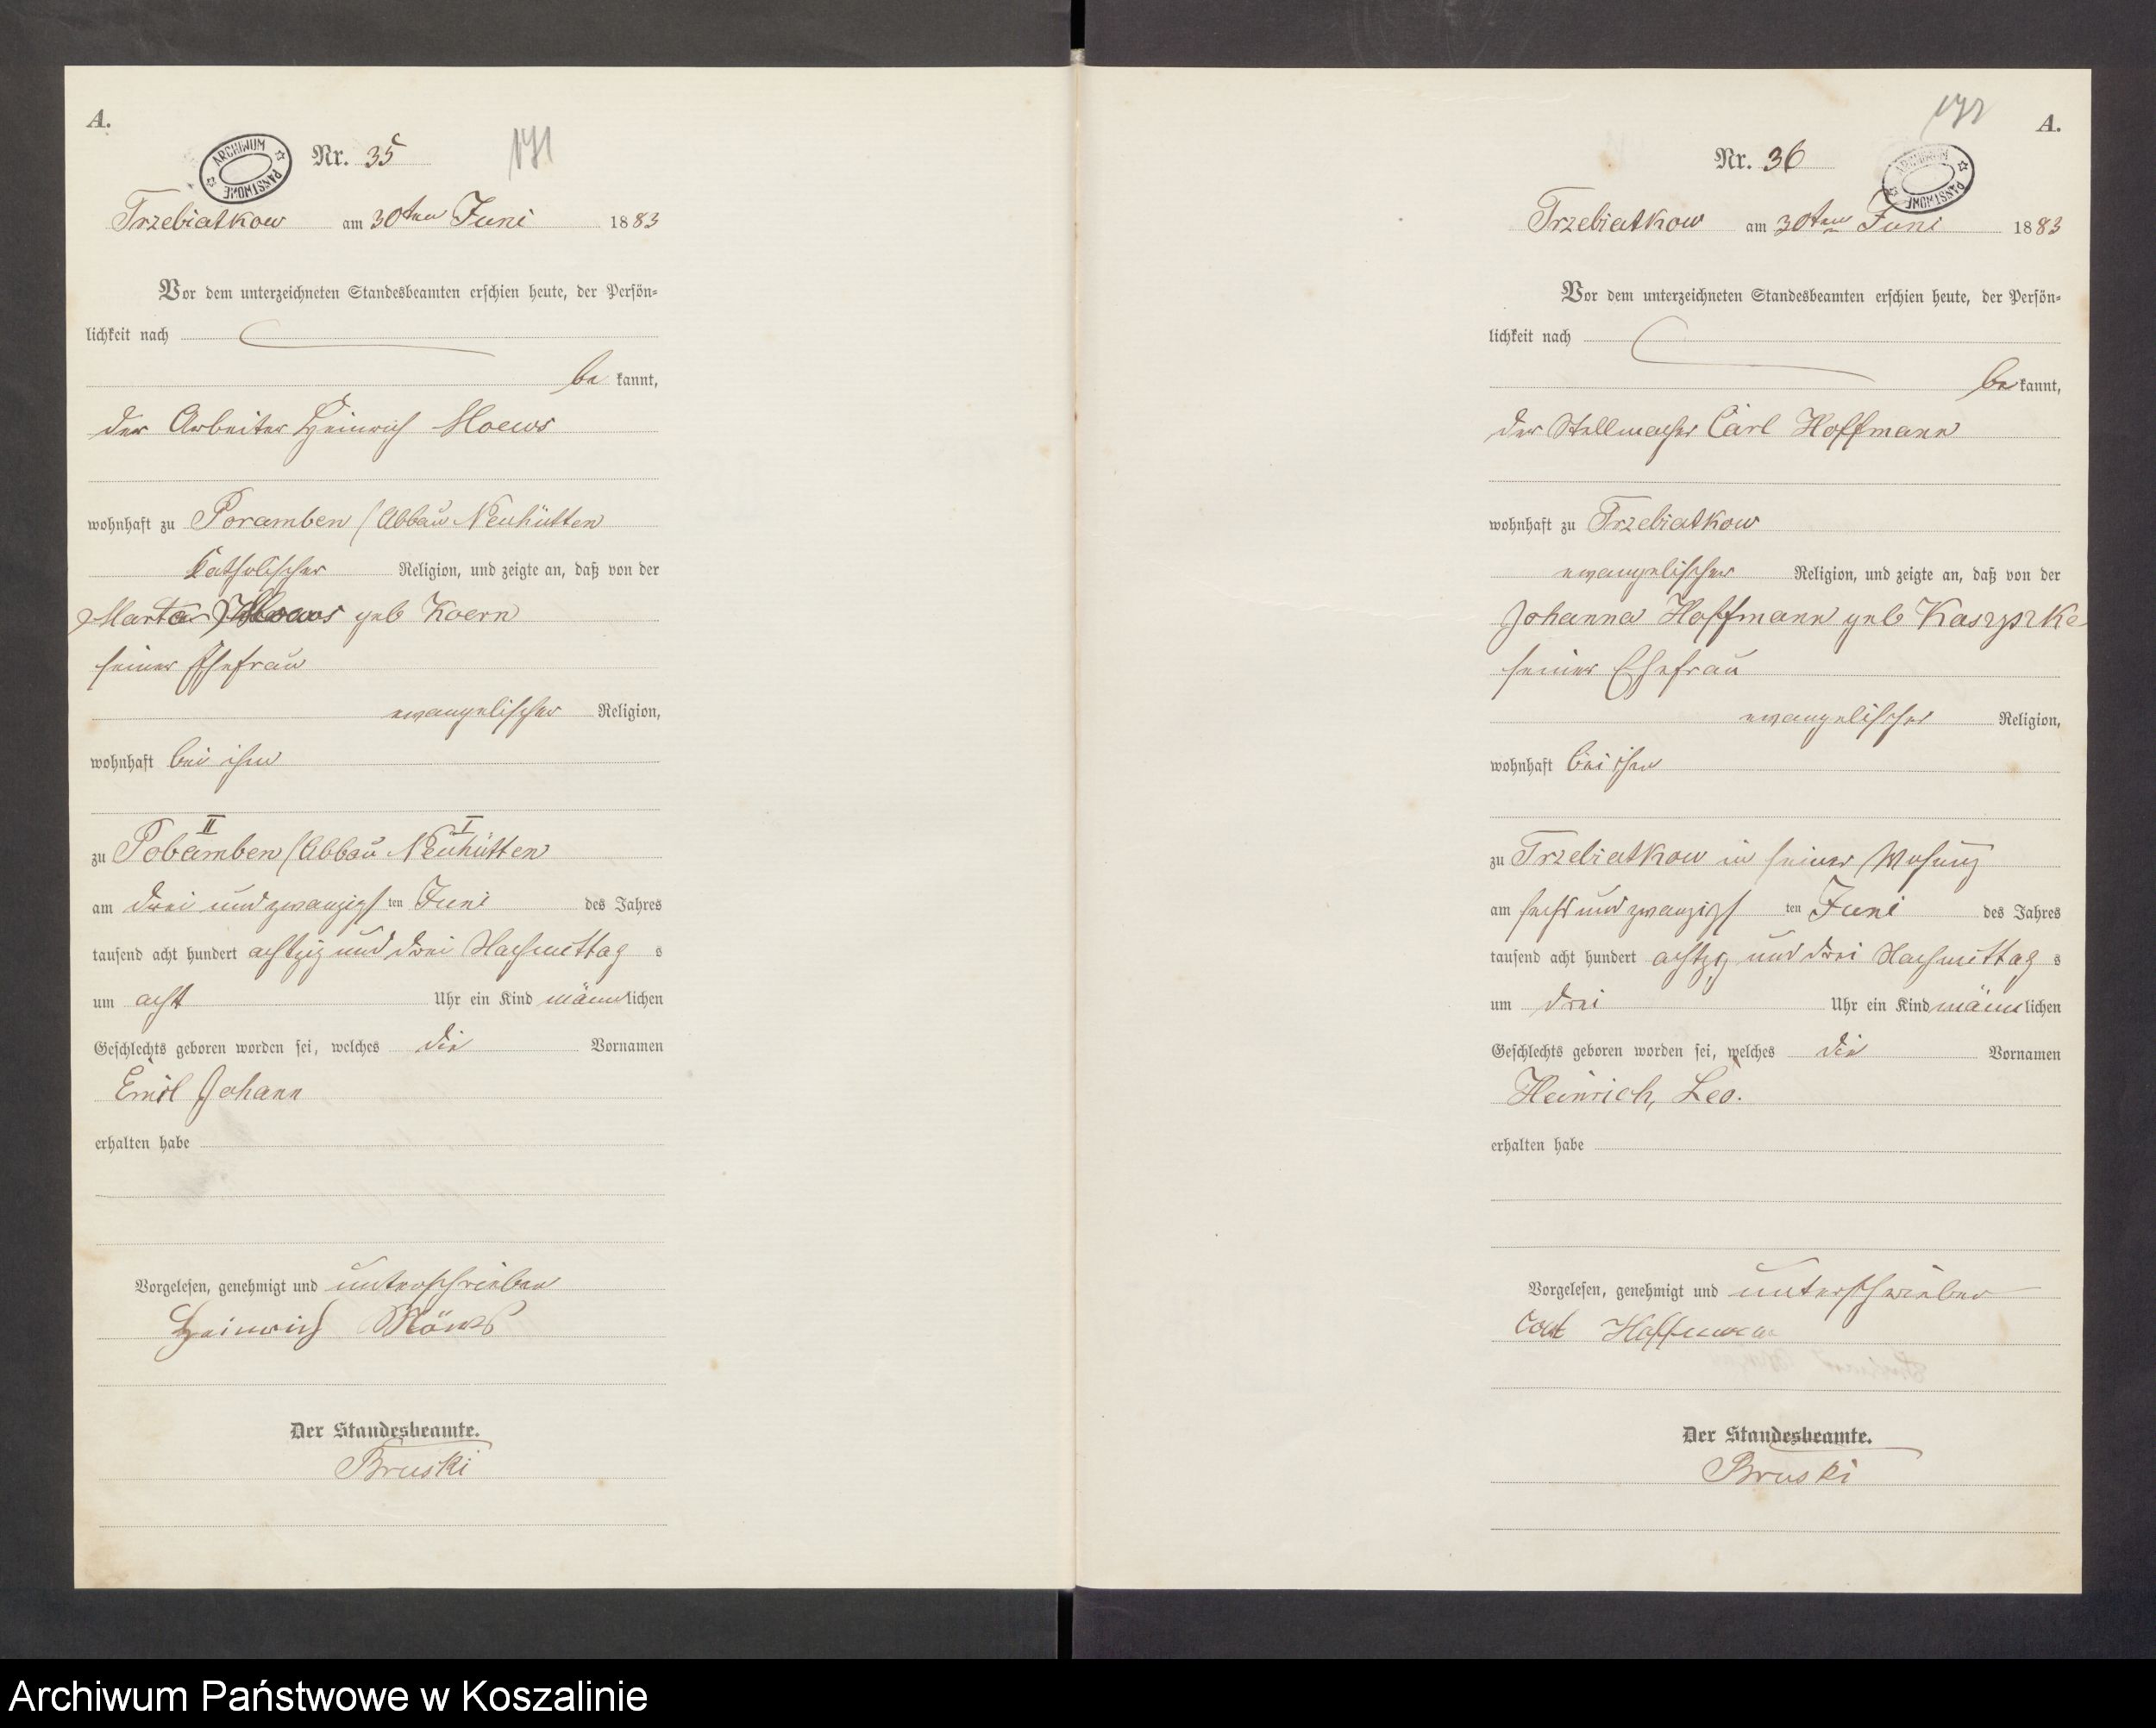 A.
ARCHIWUM PAŃSTWOWE
Nr. 35
171
Trzebiatkow am 30ten Juni 1883
Vor dem unterzeichneten Standesbeamten erschien heute, der Persön-
lichkeit nach
be kannt,
der Arbeiter Heinrich Moews
wohnhaft zu Poramben / Abbau Neuhütten
katholischer Religion, und zeigte an, daß von der
Marta Moews geb Koern
seiner Ehefrau
evangelischer Religion,
wohnhaft bei ihm
II I
zu Pobamben / Abbau Neuhütten
am drei und zwanzigs ten Juni des Jahres
tausend acht hundert achtzig und drei Nachmittag s
um acht Uhr ein Kind männlichen
Geschlechts geboren worden sei, welches die Vornamen
Emil Johann
erhalten habe
Vorgelesen, genehmigt und unterschrieben
Heinrich
Der Standesbeamte.
Bruski
172
A.
Nr. 36
ARCHIWUM PAŃSTWOWE
Trzebiatkow am 30ten Juni 1883
Vor dem unterzeichneten Standesbeamten erschien heute, der Persön-
lichkeit nach
be kannt,
der Stellmacher Carl Hoffmann
wohnhaft zu Trzebiatkow
evangelischer Religion, und zeigte an, daß von der
Johanna Hoffmann geb
seiner Ehefrau
evangelischer Religion,
wohnhaft bei ihm
zu Trzebiatkow in seiner Wohung
am sechs und zwanzigs ten Juni des Jahres
tausend acht hundert achtzg und drei Nachmittag s
um drei Uhr ein Kind männ lichen
Geschlechts geboren worden sei, welches die Vornamen
Heinrich, Leo.
erhalten habe
Vorgelesen, genehmigt und unterschrieben
Hoffmann
Der Standesbeamte.
Bruski
Archiwum Państwowe w Koszalinie